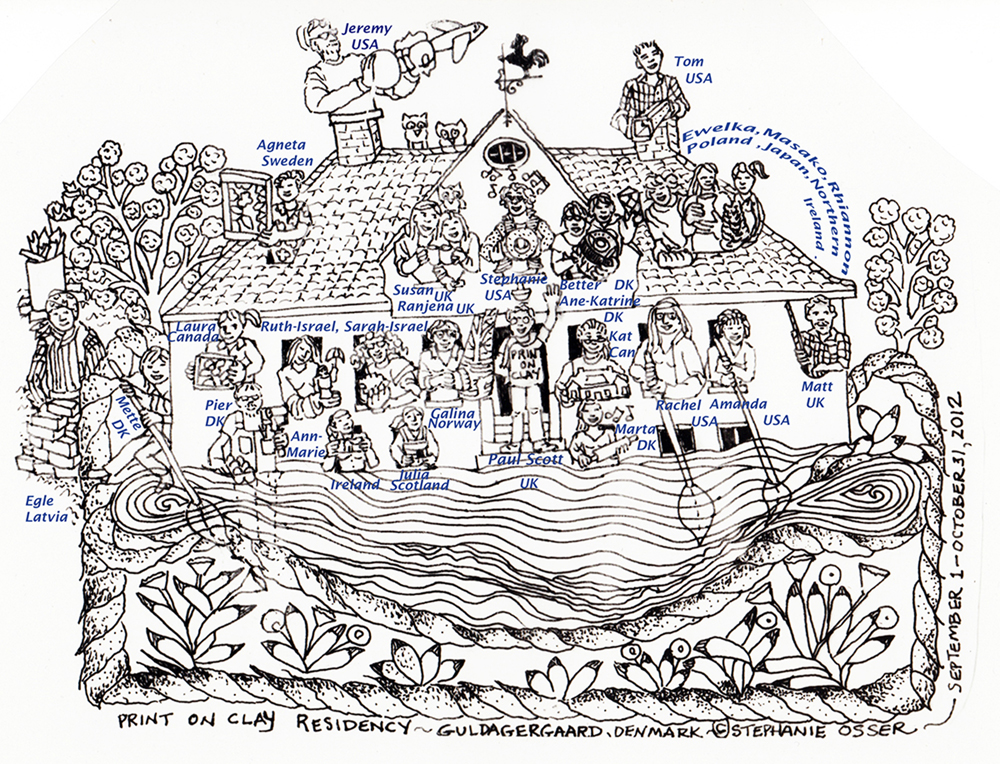 Jeremy
USA
Tom
USA
Agneta
Sweden
Ewelka, Masako, Rhiannon
Poland, Japan, Northern
Ireland
Susan UK
Ranjena UK
Stephanie
USA
Better DK
Ane-Katrine
DK
Laura
Canada
Ruth-Israel, Sarah-Israel
PRINT
ON
CLAY
Kat
Can
Matt
UK
Mette
DK
Pier
DK
Ann-
Marie
Ireland
Julia
Scotland
Galina
Norway
Paul Scott
UK
Marta
DK
Rachel
USA
Amanda
USA
Egle
Latvia
PRINT ON CLAY RESIDENCY ~ GULDAGERGAARD, DENMARK ~ © STEPHANIE OSSER
SEPTEMBER 1-OCTOBER 31, 2012